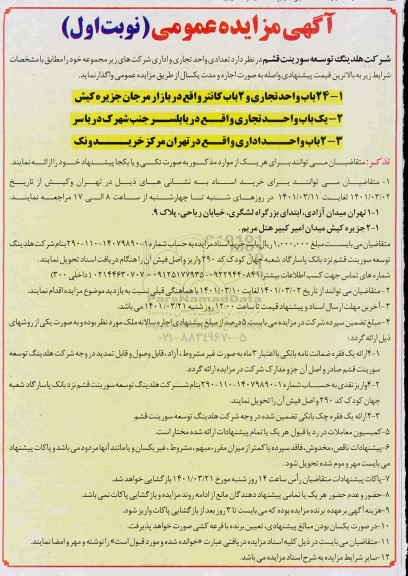 آگهی مزایده عمومی (نوبت اول)
شرکت هلدینگ توسعه سورینت قشم در نظر دارد تعدادی واحد تجاری و اداری شرکت های زیر مجموعه خود را مطابق با مشخصات
شرایط زیر به بالاترین قیمت پیشنهادی واصله به صورت اجاره و مدت یکسال از طریق مزایده عمومی واگذار نماید.
۱-۲۴ باب واحد تجاری و ۲ باب کانتر واقع در بازار مرجان جزیره کیش
۲- یک باب واحد تجاری واقع در بابلسر جنب شهرک دریاسر
۳-۲ باب واحد اداری واقع در تهران مرکز خرید ونک
تذکر: متقاضیان می توانند برای هر یک از موارد مذکور به صورت تکی و یا یکجا پیشنهاد خود را ارائه نمایند.
۱- متقاضیان می توانند برای خرید اسناد به نشانی های ذیل در تهران و کیش از تاریخ
۱۴۰۱/۰۳/۰۲ لغایت ۱۴۰۱/۰۳/۱۱ در روزهای شنبه تا چهارشنبه از ساعت ۸ الی ۱۷ مراجعه نمایند.
۱-۱ تهران میدان آزادی، ابتدای بزرگراه لشگری، خیابان ریاحی، پلاک ۹.
۱-۲ جزیره کیش میدان امیر کبیر هتل مریم.
متقاضیان می بایست مبلغ ۱,۰۰۰,۰۰۰ ریال بابت خرید اسناد مزایده به حساب شماره ۱-۱۴۰۷۹۸۹۰-۱۱۰-۲۹۰ بنام شرکت هلدینگ
توسعه سورینت قشم نزد بانک پاسارگاد شعبه جهان کودک کد ۲۹۰ واریز و اصل فیش آن را هنگام دریافت اسناد تحویل نمایند.
شماره های تماس جهت کسب اطلاعات بیشتر: ۰۹۲۲۹۴۴۰۸۴۹ - ۰۹۱۲۵۱۷۷۹۳۵ - ۰۲۱۴۴۶۳۰۷۰۷ (داخلی ۳۰۰)
۲- متقاضیان می توانند از تاریخ ۱۴۰۱/۰۳/۰۲ لغایت ۱۴۰۱/۰۳/۱۰ با هماهنگی قبلی نسبت به بازدید موضوع مزایده اقدام نمایند.
۳- آخرین مهلت ارسال اسناد و پیشنهاد قیمت تا ساعت ۱۲:۰۰ روز شنبه ۱۴۰۱/۰۳/۲۱ می باشد.
۴- مبلغ تضمین سپرده شرکت در مزایده می بایست ۵ درصد از مبلغ پیشنهادی اجاره سالانه ملک مورد نظر بوده و به صورت یکی از روشهای
ذیل ارائه گردد:
۴-۱ ارائه یک فقره ضمانت نامه بانکی با اعتبار ۳ ماه به صورت غیر مشروط، آزاد، قابل وصول و قابل تمدید در وجه شرکت هلدینگ توسعه
سورینت قشم صادر و اصل آن جزو مدارک شرکت در مزایده ارائه گردد.
۴-۲ واریز نقدی به حساب شماره ۱-۱۴۰۷۹۸۹۰-۱۱۰-۲۹۰ بنام شرکت هلدینگ توسعه سورینت قشم نزد بانک پاسارگاد شعبه
جهان کودک کد ۲۹۰ و اصل فیش آن را تحویل نمایند.
۴-۳ ارائه یک فقره چک بانکی تضمین شده در وجه شرکت هلدینگ توسعه سورینت قشم
۵- کمیسیون معاملات در رد یا قبول هر یک یا تمام پیشنهادات ارائه شده مختار است.
۶- پیشنهادات ناقص، مخدوش، فاقد سپرده یا کمتر از میزان مقرر، مبهم، مشروط، غیر یکسان و یا مانند آنها مردود می باشد و پاکات پیشنهاد
می بایست مهر و موم شده تحویل شود.
۷- پاکات پیشنهادات متقاضیان رأس ساعت ۱۴ روز شنبه مورخ ۱۴۰۱/۰۳/۲۱ بازگشایی خواهد شد.
۸- حضور و عدم حضور هر یک یا تمامی پیشنهاد دهندگان مانع از ادامه روند مزایده و بازگشایی پاکات نمی باشد.
۹- هزینه آگهی بر عهده برنده مزایده بوده که می بایست تا ۳ روز بعد از بازگشایی پاکات واریز شود.
۱۰- در صورت یکسان بودن مبالغ پیشنهادی، تعیین برنده با قرعه کشی صورت خواهد پذیرفت.
۱۱- متقاضیان می بایست در ذیل کلیه اسناد مزایده دریافتی عبارت «خوانده شده و مورد قبول است» را نوشته و مهر و امضا نمایند.
۱۲- سایر شرایط مزایده به شرح اسناد مزایده می باشد.
ParsNamadData
۰۲۱-۸۸۳۴۹۶۷۰-۵